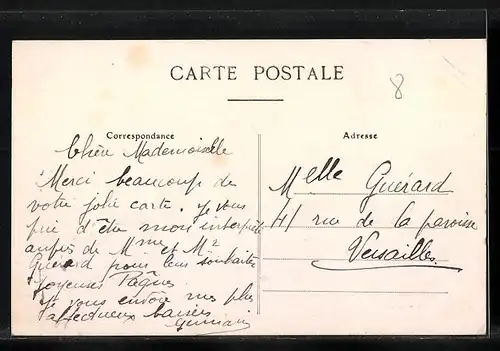 CARTE POSTALE
8
Correspondance
Chère Mademoiselle
Merci beaucoup de
votre jolie carte. Je vous
prie d'être mon interprète
auprès de Mme et Mr
Guérard pour leur souhaiter
Joyeuses Pâques.
Je vous envoie mes plus
affectueux baisers
Adresse
Melle Guérard
41 rue de la paroisse
Versailles.